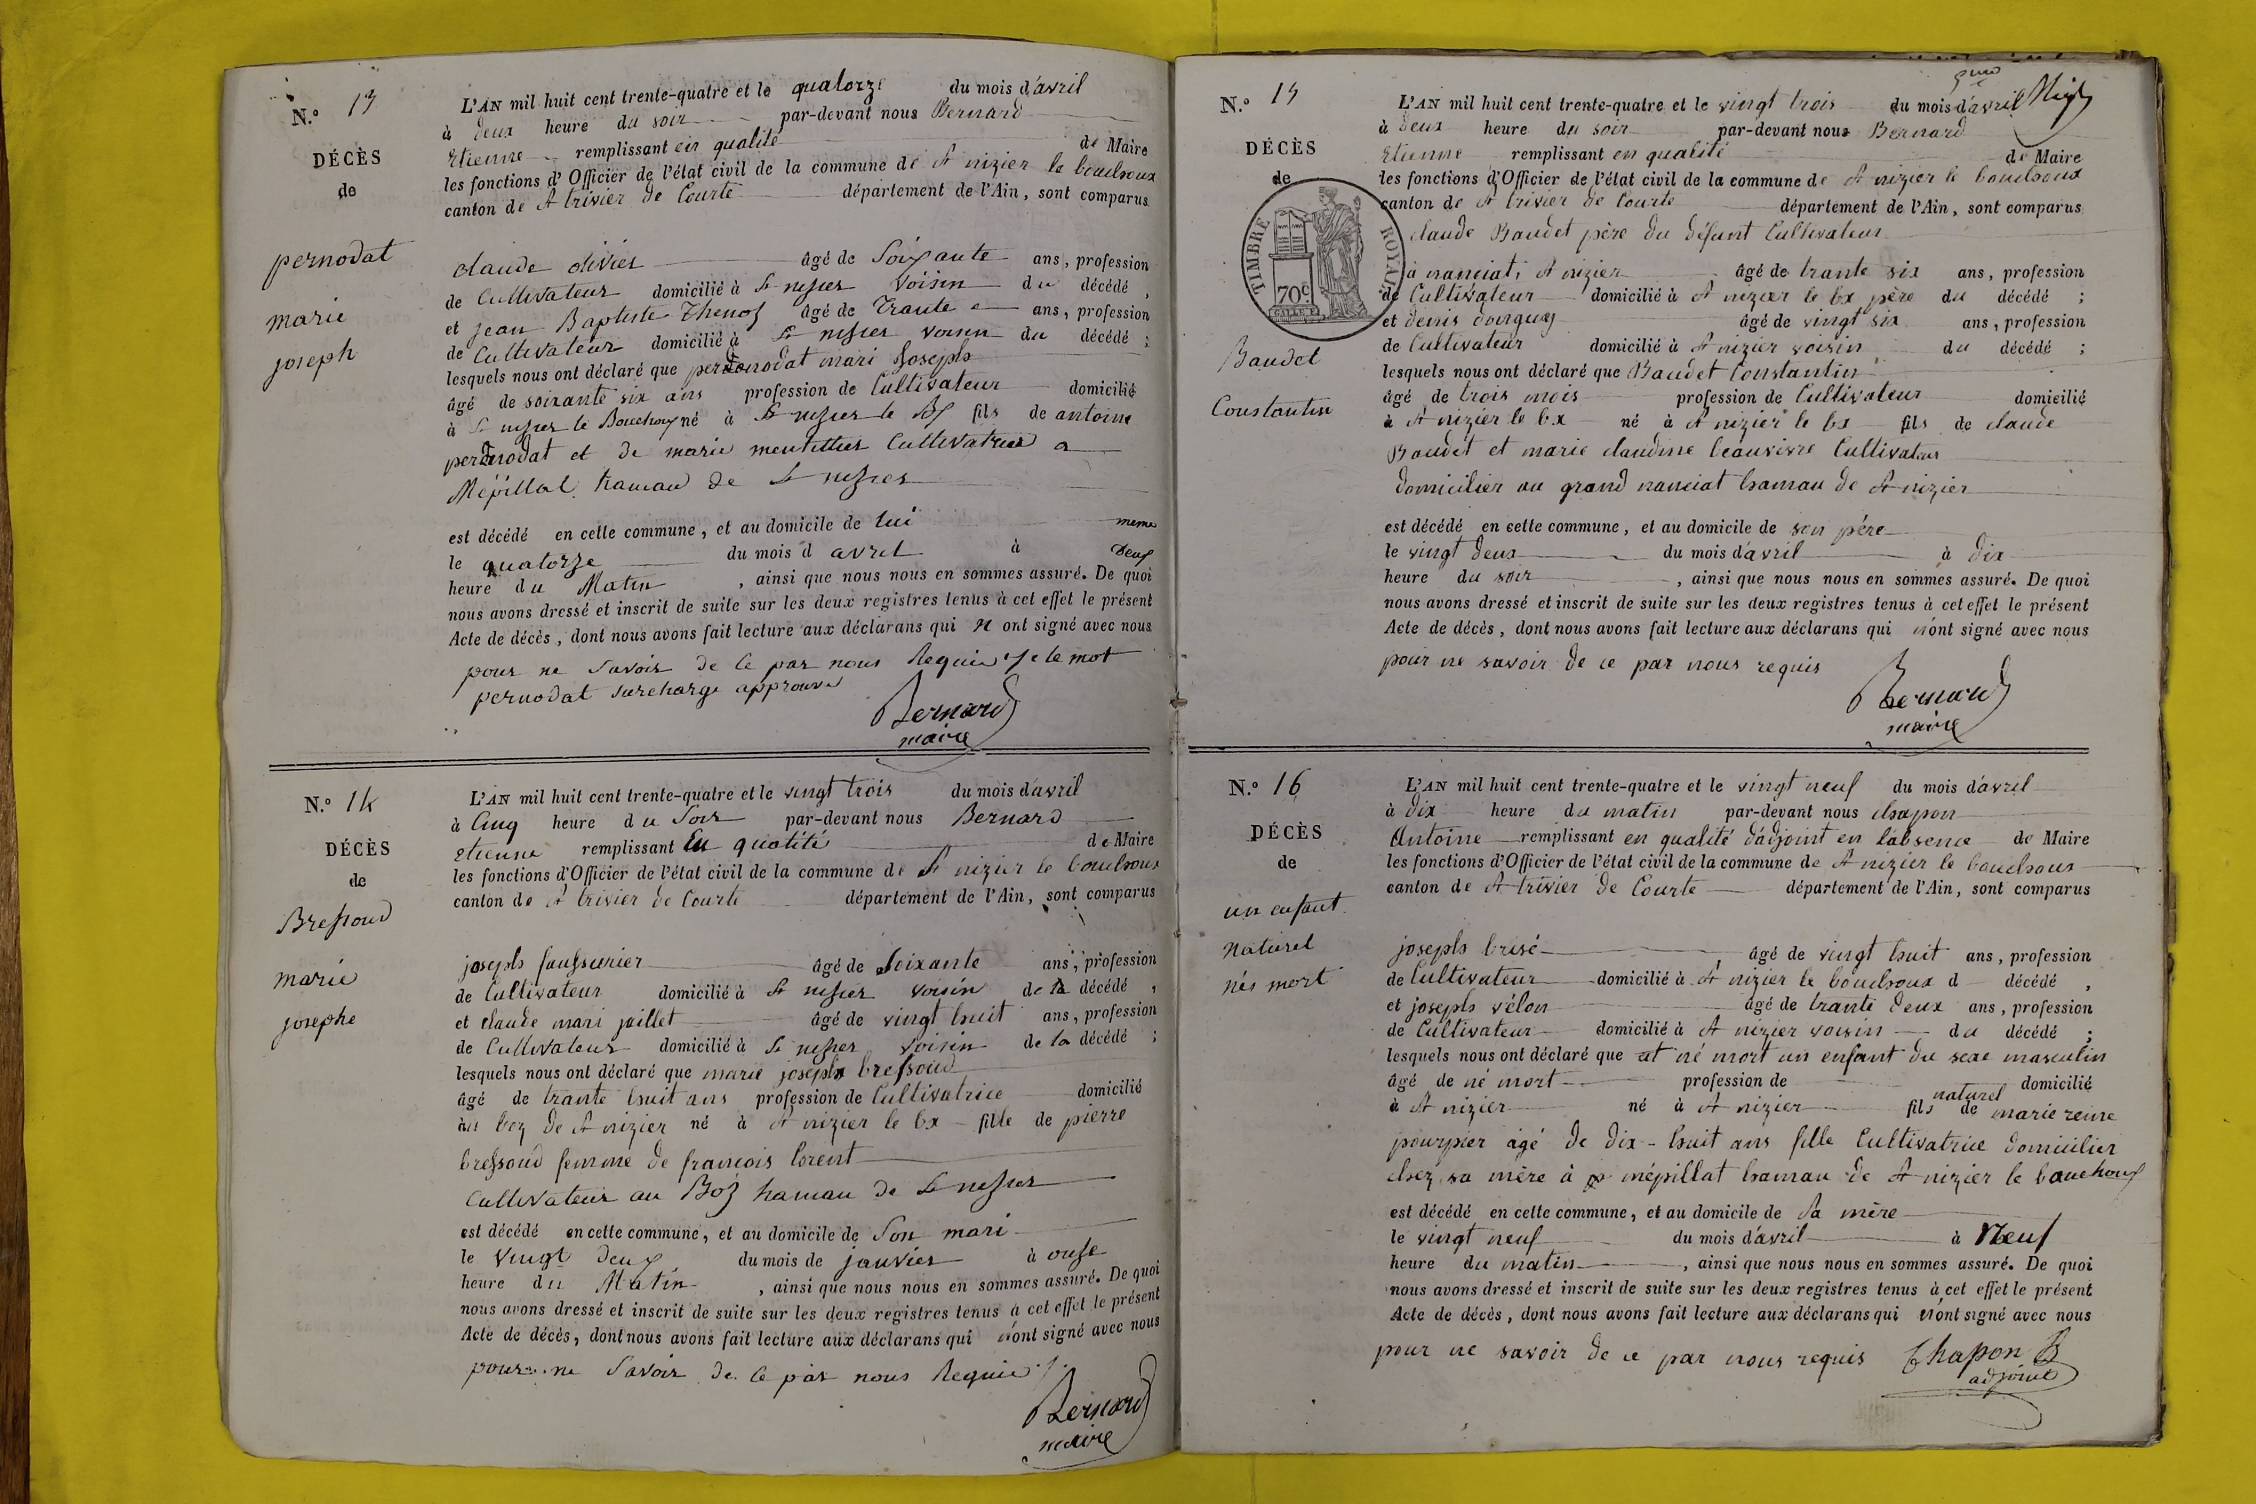 N.° 13
DÉCÈS
de
pernodat
marie
joseph
L'AN mil huit cent trente-quatre et le quatorze du mois d'avril
à deux heure du soir par-devant nous Bernard
Etienne remplissant en qualité de Maire
les fonctions d'Officier de l'état civil de la commune de St nizier le bouchoux
canton de St trivier de Courte département de l'Ain, sont comparus
claude olivier âgé de Soixante ans, profession
de Cultivateur domicilié à St nizier Voisin du décédé,
et jean Baptiste Thenoz âgé de Trante ans, profession
de Cultivateur domicilié à St nizier voisin du décédé ;
lesquels nous ont déclaré que pernodat mari Joseph
âgé de soixante six ans profession de Cultivateur domicilié
à St nizier le Bouchoux né à St nizier le fils de antoine
pernodat et de marie Cultivatrice a
Mépillat hamau de St nizier
est décédé en cette commune, et au domicile de lui meme
le quatorze du mois d avril à deux
heure du Matin, ainsi que nous nous en sommes assuré. De quoi
nous avons dressé et inscrit de suite sur les deux registres tenus à cet effet le présent
Acte de décès, dont nous avons fait lecture aux déclarans qui n ont signé avec nous
pour ne Savoir de ce par nous Requis le mot
pernodat surcharge approuvé
Bernard
maire
N.° 14
DÉCÈS
de
Bressoud
marie
josephe
L'AN mil huit cent trente-quatre et le vingt trois du mois d'avril
à Cinq heure du Soir par-devant nous Bernard
Etienne remplissant En qualité de Maire
les fonctions d'Officier de l'état civil de la commune de St nizier le bouchoux
canton de St trivier de Courte département de l'Ain, sont comparus
joseph faussurier âgé de Soixante ans, profession
de Cultivateur domicilié à St nizier voisin de la décédé,
et claude mari jaillet âgé de vingt huit ans, profession
de Cultivateur domicilié à St nizier Voisin de la décédé ;
lesquels nous ont déclaré que marie joseph bressoud
âgé de trante huit ans profession de Cultivatrice domicilié
au boz de St nizier né à St nizier le bx fille de pierre
bressoud femme de francois lorent
Cultivateur au Boz hamau de St nizier
est décédé en cette commune, et au domicile de Son mari
le Vingt Deux du mois de janvier à onze
heure du Matin, ainsi que nous nous en sommes assuré. De quoi
nous avons dressé et inscrit de suite sur les deux registres tenus à cet effet le présent
Acte de décès, dont nous avons fait lecture aux déclarans qui n'ont signé avec nous
pour ne Savoir de ce par nous Requis
Bernard
maire
N.° 15
DÉCÈS
de
TIMBRE ROYAL
70c
Baudet
Constantin
L'AN mil huit cent trente-quatre et le vingt trois du mois d'avril
à deux heure du soir par-devant nous Bernard
Etienne remplissant en qualité de Maire
les fonctions d'Officier de l'état civil de la commune de St nizier le bouchoux
canton de St trivier de Courte département de l'Ain, sont comparus
claude Baudet père du défunt Cultivateur
à nanciat, St nizier âgé de trante six ans, profession
de Cultivateur domicilié à St nizier le bx père du décédé ;
et denis âgé de vingt six ans, profession
de Cultivateur domicilié à St nizier voisin du décédé ;
lesquels nous ont déclaré que Baudet Constantin
âgé de trois mois profession de Cultivateur domicilié
à St nizier le bx né à St nizier le bx fils de claude
Baudet et marie claudine beauvivre Cultivateur
domicilier au grand nanciat hamau de St nizier
est décédé en cette commune, et au domicile de son père
le vingt deux du mois d'avril à dix
heure du soir, ainsi que nous nous en sommes assuré. De quoi
nous avons dressé et inscrit de suite sur les deux registres tenus à cet effet le présent
Acte de décès, dont nous avons fait lecture aux déclarans qui n'ont signé avec nous
pour ne savoir de ce par nous requis
Bernard
maire
N.° 16
DÉCÈS
de
un enfant
naturel
nés mort
L'AN mil huit cent trente-quatre et le vingt neuf du mois d'avril
à dix heure du matin par-devant nous chapon
Antoine remplissant en qualité d'adjoint en l'absence de Maire
les fonctions d'Officier de l'état civil de la commune de St nizier le bouchoux
canton de St trivier de Courte département de l'Ain, sont comparus
joseph brisé âgé de vingt huit ans, profession
de Cultivateur domicilié à St nizier le bouchoux d décédé,
et joseph vélon âgé de trante deux ans, profession
de Cultivateur domicilié à St nizier voisin du décédé ;
lesquels nous ont déclaré que et né mort un enfant du sexe masculin
âgé de né mort profession de domicilié
à St nizier né à St nizier fils naturel de marie reine
pourpier agé de dix-huit ans fille Cultivatrice domicilier
chez sa mère à mépillat hamau de St nizier le bouchoux
est décédé en cette commune, et au domicile de Sa mère
le vingt neuf du mois d'avril à Neuf
heure du matin, ainsi que nous nous en sommes assuré. De quoi
nous avons dressé et inscrit de suite sur les deux registres tenus à cet effet le présent
Acte de décès, dont nous avons fait lecture aux déclarans qui n'ont signé avec nous
pour ne savoir de ce par nous requis
Chapon
adjoint